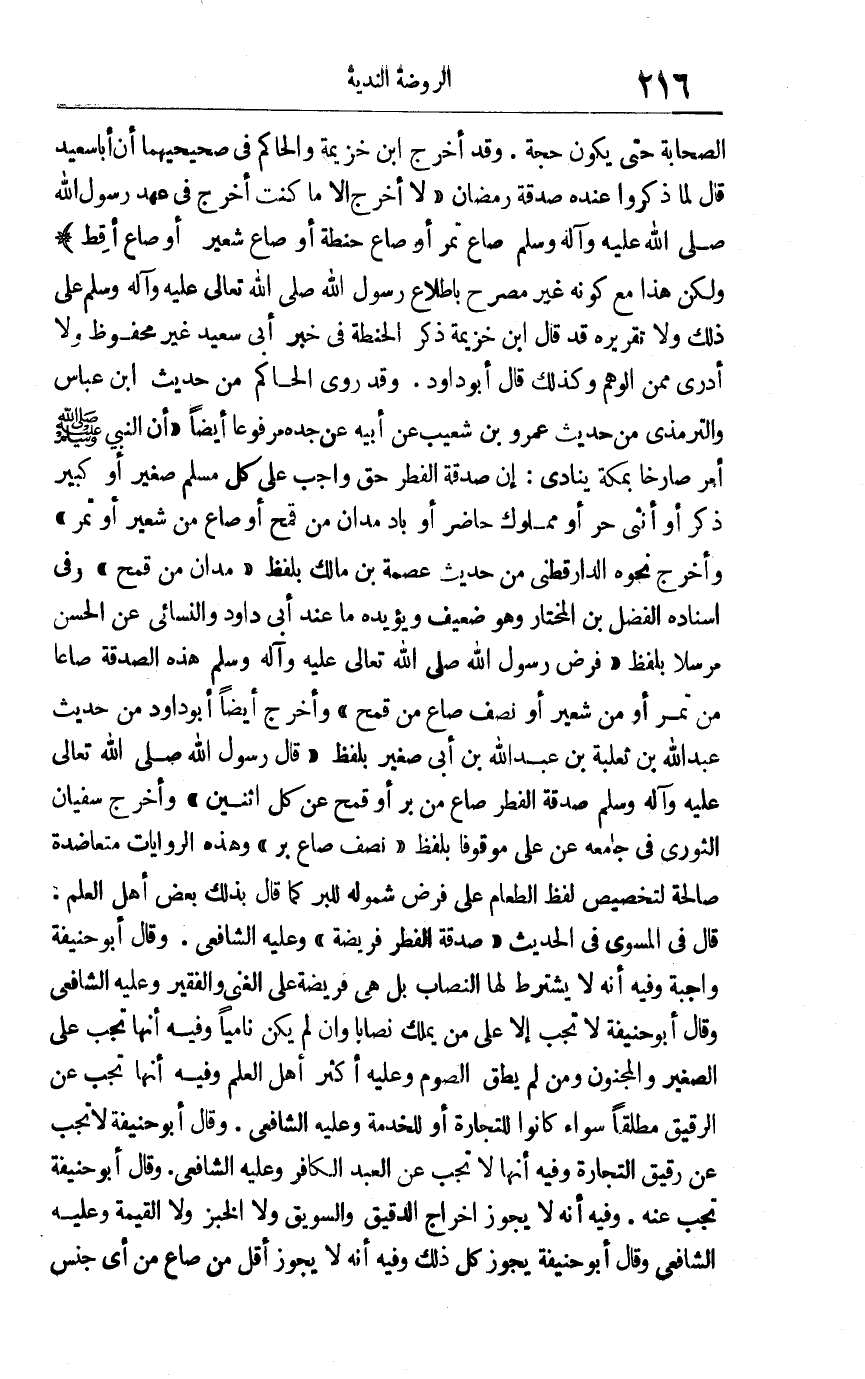 ٢١٦ الروضة الندية
الصحابة حتى يكون حجة . وقد أخرج ابن خزيمة والحاكم فى صحيحيهما أن أباسعيد
قال لما ذكروا عنده صدقة رمضان « لا أخرج الا ما كنت أخرج فى عهد رسول الله
صلى الله عليه وآله وسلم صاع تمر أو صاع حنطة أو صاع شعير أو صاع أقط »
ولكن هذا مع كونه غير مصرح باطلاع رسول الله صلى الله تعالى عليه وآله وسلم على
ذلك ولا تقريره قد قال ابن خزيمة ذكر الحنطة فى خبر أبى سعيد غير محفوظ ولا
أدرى ممن الوهم وكذلك قال أبوداود . وقد روى الحاكم من حديث ابن عباس
والترمذى من حديث عمرو بن شعيب عن أبيه عن جده مرفوعا أيضاً «أن النبي ﷺ
أمر صارخا بمكة ينادى : إن صدقة الفطر حق واجب على كل مسلم صغير أو كبير
ذكر أو أنثى حر أو مملوك حاضر أو باد مدان من قمح أو صاع من شعير أو تمر »
وأخرج نحوه الدارقطنى من حديث عصمة بن مالك بلفظ « مدان من قمح » وفى
اسناده الفضل بن المختار وهو ضعيف ويؤيده ما عند أبى داود والنسائى عن الحسن
مرسلا بلفظ « فرض رسول الله صلى الله تعالى عليه وآله وسلم هذه الصدقة صاعا
من تمر أو من شعير أو نصف صاع من قمح » وأخرج أيضاً أبوداود من حديث
عبدالله بن ثعلبة بن عبدالله بن أبى صغير بلفظ « قال رسول الله صلى الله تعالى
عليه وآله وسلم صدقة الفطر صاع من بر أو قمح عن كل اثنين » وأخرج سفيان
الثورى فى جامعه عن على موقوفا بلفظ « نصف صاع بر » وهذه الروايات متعاضدة
صالحة لتخصيص لفظ الطعام على فرض شموله للبر كما قال بذلك بعض أهل العلم :
قال فى المسوى فى الحديث « صدقة الفطر فريضة » وعليه الشافعى . وقال أبوحنيفة
واجبة وفيه أنه لا يشترط لها النصاب بل هى فريضة على الغنى والفقير وعليه الشافعى
وقال أبوحنيفة لا تجب إلا على من يملك نصابا وان لم يكن نامياً وفيه أنها تجب على
الصغير والمجنون ومن لم يطق الصوم وعليه أكثر أهل العلم وفيه أنها تجب عن
الرقيق مطلقاً سواء كانوا للتجارة أو للخدمة وعليه الشافعى . وقال أبوحنيفة لاتجب
عن رقيق التجارة وفيه أنها لا تجب عن العبد الكافر وعليه الشافعى. وقال أبوحنيفة
تجب عنه . وفيه أنه لا يجوز اخراج الدقيق والسويق ولا الخبز ولا القيمة وعليه
الشافعى وقال أبوحنيفة يجوز كل ذلك وفيه أنه لا يجوز أقل من صاع من أى جنس